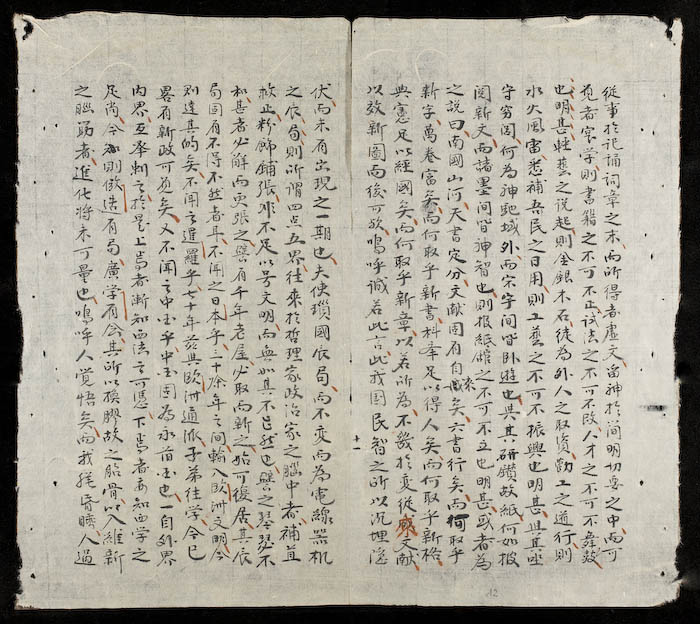 從事於記誦詞章之末而所得者虛文留神於簡明切要之中而可
覓者實學則書籍之不可不正試法之不可不改人才之不可不舞鼓
也明甚輕藝之說起則金銀木石徒為外人之取資勸工之道行則
水火風雷悉補吾民之日用則工藝之不可不振興也明甚且其坐
守窮閭何為神馳域外而宗字間皆臥遊也與其研鑽故紙何如披
閱新文而諸墨間皆神智也則報紙館之不可不立也明甚或者為
之說曰南國山河天書定分文獻固有自來矣六書行矣而何取乎
新字萬卷富矣而何取乎新書科舉足以得人矣而何取乎新格
典憲足以經國矣而何取乎新章以若所為不幾於變從 文獻
以效新圖而後可歟嗚呼誠若此言此我國民智之所以沉埋隱
十一
伏而未有出現之一期也夫使瑣國依局而不變而為電線器机
之依局則所謂四点五界往來於哲理家政治家之腦中者補苴
救止粉飾鋪張非不足以号文明而無如其不已然也譬之琴瑟不
和甚者必解而更張之譬有千年老屋必取而新之始可復居其辰
局固有不得不然者耳不聞之日本乎三十餘年之間輸入歐洲文明今
則達其的矣不聞之暹羅乎七十年前與歐洲通派子弟往學今已
畧有新政可覓矣又不聞之中囯乎中囯固為永首囯也一自外界
內界互牽制之於是上焉者漸知西法之可憑下焉者要知西學之
足尚今則鉄造有局廣學有會其所以換膠故之胎骨以入維新
之腦筋者進化將未可量也嗚呼人覚悟矣而我猶昏睡人過
12